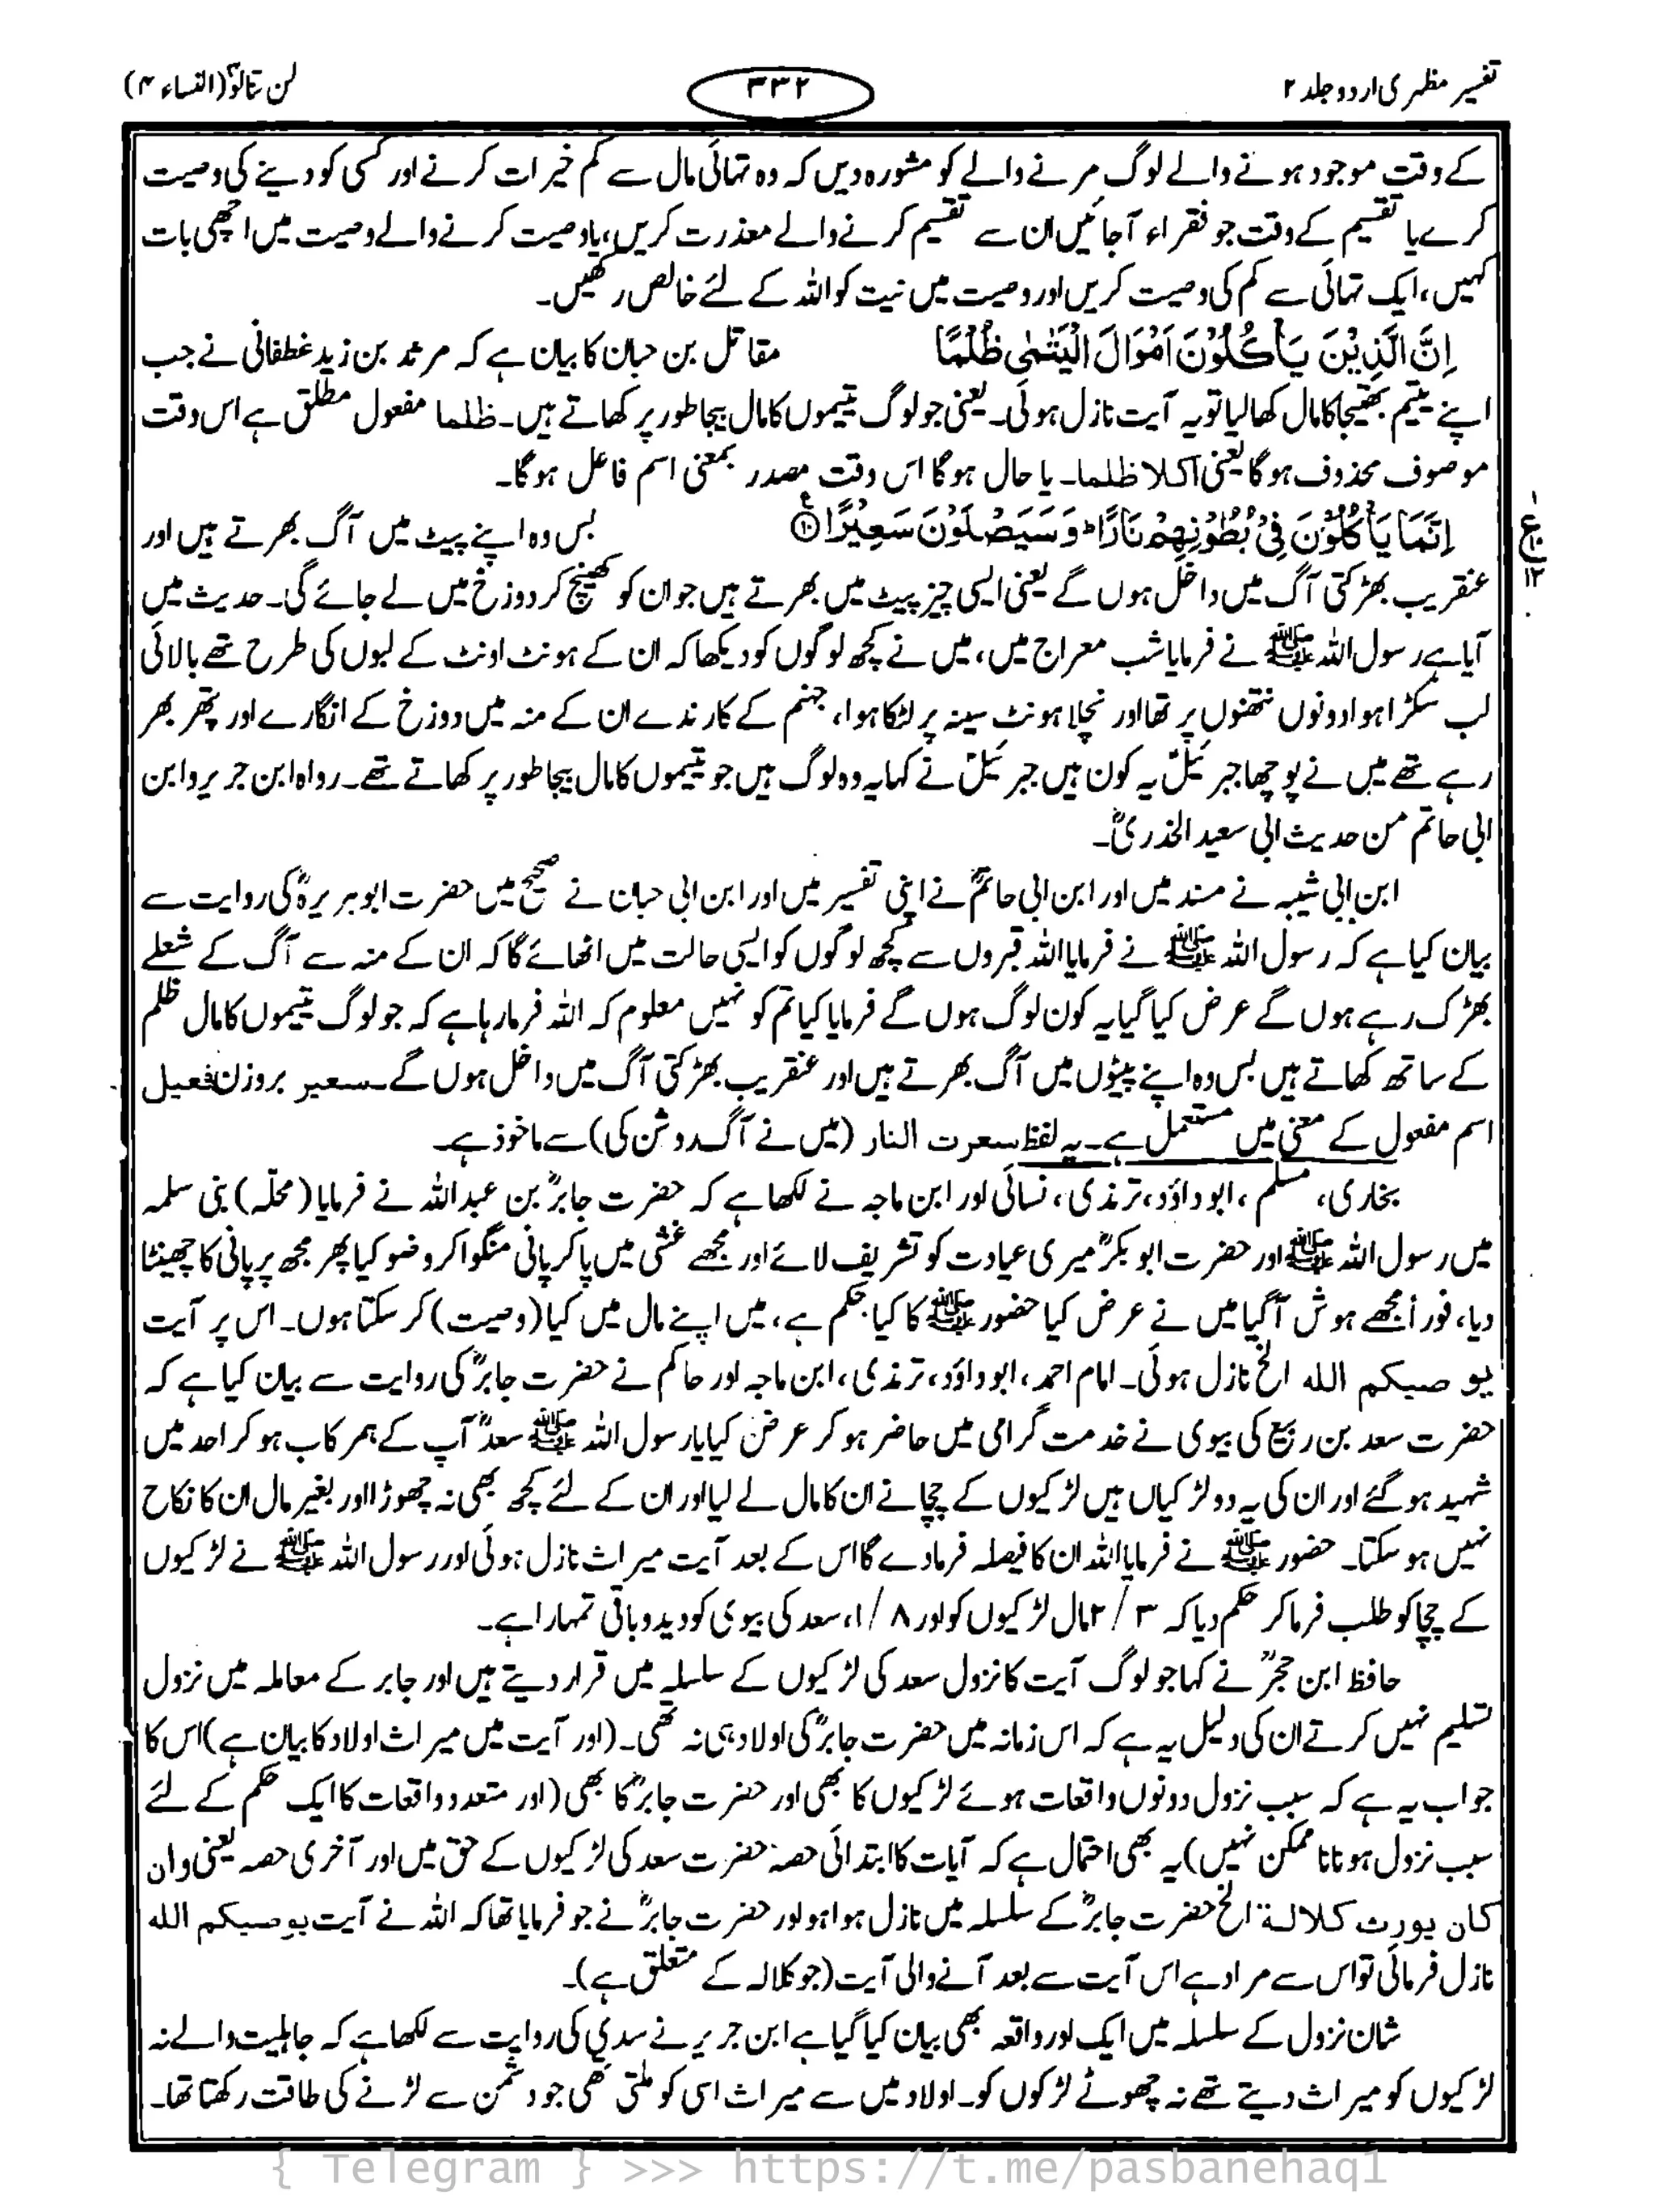 تفسیر مظہری اردو جلد ۲
۳۳۲
لن تنالوا (النساء ۴)
کے وقت موجود ہونے والے لوگ مرنے والے کو مشورہ دیں کہ وہ تہائی مال سے کم خیرات کرنے اور کسی کو دینے کی وصیت
کرے یا تقسیم کے وقت جو فقراء آجائیں ان سے تقسیم کرنے والے معذرت کریں، یا وصیت کرنے والے وصیت میں اچھی بات
کہیں، ایک تہائی سے کم کی وصیت کریں اور وصیت میں نیت کو اللہ کے لئے خالص رکھیں۔
اِنَّ الَّذِیْنَ یَاْکُلُوْنَ اَمْوَالَ الْیَتٰمٰی ظُلْمًا مقاتل بن حبان کا بیان ہے کہ مرثد بن زید غطفانی نے جب
اپنے یتیم بھتیجا کا مال کھالیا تو یہ آیت نازل ہوئی۔ یعنی جو لوگ یتیموں کا مال بیجا طور پر کھاتے ہیں۔ ظلما مفعول مطلق ہے اس وقت
موصوف محذوف ہوگا یعنی آکلا ظلما۔ یا حال ہوگا اس وقت مصدر بمعنی اسم فاعل ہوگا۔
اِنَّمَا یَاْکُلُوْنَ فِیْ بُطُوْنِهِمْ نَارًا ؕ وَسَیَصْلَوْنَ سَعِیْرًا ۱۰ بس وہ اپنے پیٹ میں آگ بھرتے ہیں اور
ع ۱۲
عنقریب بھڑکتی آگ میں داخل ہوں گے یعنی ایسی چیز پیٹ میں بھرتے ہیں جو ان کو کھینچ کر دوزخ میں لے جائے گی۔ حدیث میں
آیا ہے رسول اللہ ﷺ نے فرمایا شب معراج میں، میں نے کچھ لوگوں کو دیکھا کہ ان کے ہونٹ اونٹ کے لبوں کی طرح تھے بالائی
لب سکڑا ہوا دونوں نتھنوں پر تھا اور نچلا ہونٹ سینہ پر لٹکا ہوا، جہنم کے کارندے ان کے منہ میں دوزخ کے انگارے اور پتھر بھر
رہے تھے میں نے پوچھا جبرئیلؑ یہ کون ہیں جبرئیلؑ نے کہا یہ وہ لوگ ہیں جو یتیموں کا مال بیجا طور پر کھاتے تھے۔ رواہ ابن جریر و ابن
ابی حاتم من حدیث ابی سعید الخدریؓ۔
ابن ابی شیبہ نے مسند میں اور ابن ابی حاتمؒ نے اپنی تفسیر میں اور ابن ابی حبان نے صحیح میں حضرت ابوہریرہؓ کی روایت سے
بیان کیا ہے کہ رسول اللہ ﷺ نے فرمایا اللہ قبروں سے کچھ لوگوں کو ایسی حالت میں اٹھائے گا کہ ان کے منہ سے آگ کے شعلے
بھڑک رہے ہوں گے عرض کیا گیا یہ کون لوگ ہوں گے فرمایا کیا تم کو نہیں معلوم کہ اللہ فرما رہا ہے کہ جو لوگ یتیموں کا مال ظلم
کے ساتھ کھاتے ہیں بس وہ اپنے پیٹوں میں آگ بھرتے ہیں اور عنقریب بھڑکتی آگ میں داخل ہوں گے۔ سعیر بروزن فعیل
اسم مفعول کے معنی میں مستعمل ہے۔ یہ لفظ سعرت النار (میں نے آگ روشن کی) سے ماخوذ ہے۔
بخاری، مسلم، ابوداؤد، ترمذی، نسائی اور ابن ماجہ نے لکھا ہے کہ حضرت جابرؓ بن عبداللہ نے فرمایا (محلّہ) بنی سلمہ
میں رسول اللہ ﷺ اور حضرت ابو بکرؓ میری عیادت کو تشریف لائے اور مجھے غشی میں پاکر پانی منگوا کر وضو کیا پھر مجھ پر پانی کا چھینٹا
دیا، فوراً مجھے ہوش آگیا میں نے عرض کیا حضور ﷺ کا کیا حکم ہے، میں اپنے مال میں کیا (وصیت) کر سکتا ہوں۔ اس پر آیت
یوصیکم اللہ الخ نازل ہوئی۔ امام احمد، ابوداؤد، ترمذی، ابن ماجہ اور حاکم نے حضرت جابرؓ کی روایت سے بیان کیا ہے کہ
حضرت سعد بن ربیع کی بیوی نے خدمت گرامی میں حاضر ہو کر عرض کیا یا رسول اللہ ﷺ سعدؓ آپ کے ہمرکاب ہو کر احد میں
شہید ہوگئے اور ان کی یہ دو لڑکیاں ہیں لڑکیوں کے چچا نے ان کا مال لے لیا اور ان کے لئے کچھ بھی نہ چھوڑا اور بغیر مال ان کا نکاح
نہیں ہو سکتا۔ حضور ﷺ نے فرمایا اللہ ان کا فیصلہ فرمادے گا اس کے بعد آیت میراث نازل ہوئی اور رسول اللہ ﷺ نے لڑکیوں
کے چچا کو طلب فرما کر حکم دیا کہ ۲/۳ مال لڑکیوں کو اور ۱/۸، سعد کی بیوی کو دیدو باقی تمہارا ہے۔
حافظ ابن حجرؒ نے کہا جو لوگ آیت کا نزول سعد کی لڑکیوں کے سلسلہ میں قرار دیتے ہیں اور جابر کے معاملہ میں نزول
تسلیم نہیں کرتے ان کی دلیل یہ ہے کہ اس زمانہ میں حضرت جابرؓ کی اولاد ہی نہ تھی۔ (اور آیت میں میراث اولاد کا بیان ہے) اس کا
جواب یہ ہے کہ سبب نزول دونوں واقعات ہوئے لڑکیوں کا بھی اور حضرت جابرؓ کا بھی (اور متعدد واقعات کا ایک حکم کے لئے
سبب نزول ہونا ناممکن نہیں) یہ بھی احتمال ہے کہ آیات کا ابتدائی حصہ حضرت سعد کی لڑکیوں کے حق میں اور آخری حصہ یعنی وان
کان یورث کلالة الخ حضرت جابرؓ کے سلسلہ میں نازل ہوا ہو اور حضرت جابرؓ نے جو فرمایا تھا کہ اللہ نے آیت یوصیکم اللہ
نازل فرمائی تو اس سے مراد ہے اس آیت سے بعد آنے والی آیت (جو کلالہ کے متعلق ہے)۔
شان نزول کے سلسلہ میں ایک اور واقعہ بھی بیان کیا گیا ہے ابن جریر نے سدی کی روایت سے لکھا ہے کہ جاہلیت والے نہ
لڑکیوں کو میراث دیتے تھے نہ چھوٹے لڑکوں کو۔ اولاد میں سے میراث اسی کو ملتی تھی جو دشمن سے لڑنے کی طاقت رکھتا تھا۔
{ Telegram } >>> https://t.me/pasbanehaq1